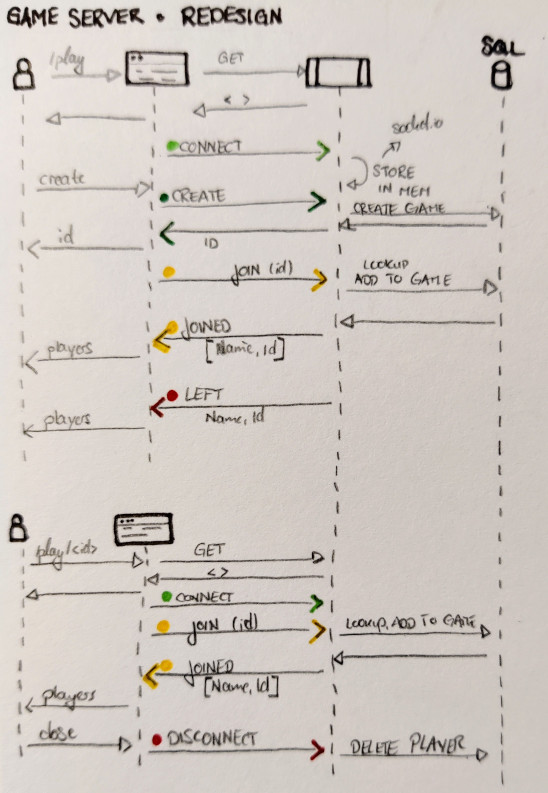 GAME SERVER • REDESIGN
SQL
/play
GET
< >
socket.io
CONNECT
STORE
IN MEM
create
CREATE
CREATE GAME
id
ID
JOIN (id)
LOOKUP
ADD TO GAME
JOINED
[Name, Id]
players
LEFT
Name, Id
players
/play/<id>
GET
< >
CONNECT
JOIN (id)
LOOKUP, ADD TO GAME
JOINED
[Name, Id]
players
close
DISCONNECT
DELETE PLAYER